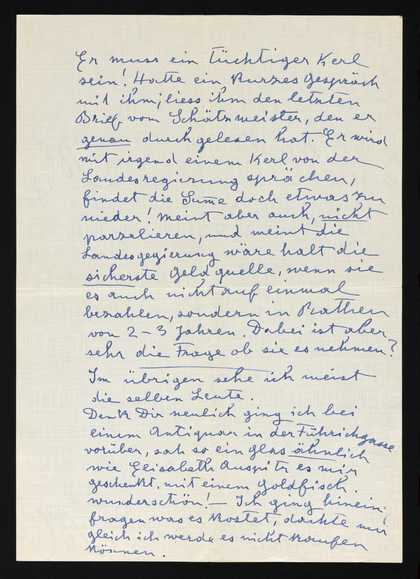 Er muss ein tüchtiger Kerl
sein! Hatte ein Kurzes Gespräch
mit ihm; liess ihm den letzten
Brief vom Schätzmeister, den er
genau durchgelesen hat. Er wird
mit irgend einem Kerl von der
Landesregierung sprächen,
findet die Sume doch etwas zu
nieder! Meint aber auch, nicht
parzelieren, und meint die
Landesgegierung wäre halt die
sicherste Geldquelle, wenn sie
es auch nicht auf einmal
bezahlen, sondern in Rathen
von 2-3 Jahren. Dabei ist aber
sehr die Frage ob sie es nehmen?
Im übrigen sehe ich meist
die selben Leute.
Denk Dir neulich ging ich bei
einem Antiquar in der Führichgasse
vorüber, sah so ein Glas ähnlich
wie Elisabeth Auspitz es mir
geschenkt, mit einem Goldfisch.
wunderschön! - Ich ging hinein
fragen was es Kostet, dachte mir
gleich ich werde es nicht Kaufen
Können.